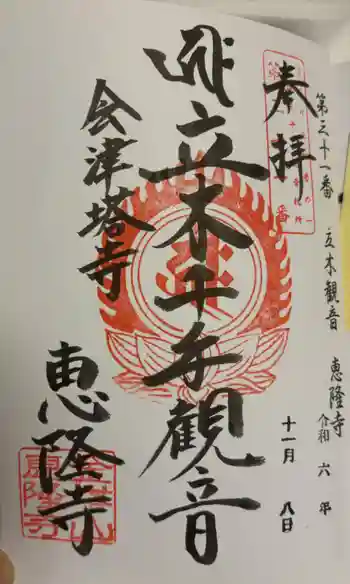 第三十一番 立木観音 恵隆寺
令和 六 年
十一月 八日
奉拝
立木千手観音
会津塔寺
恵隆寺